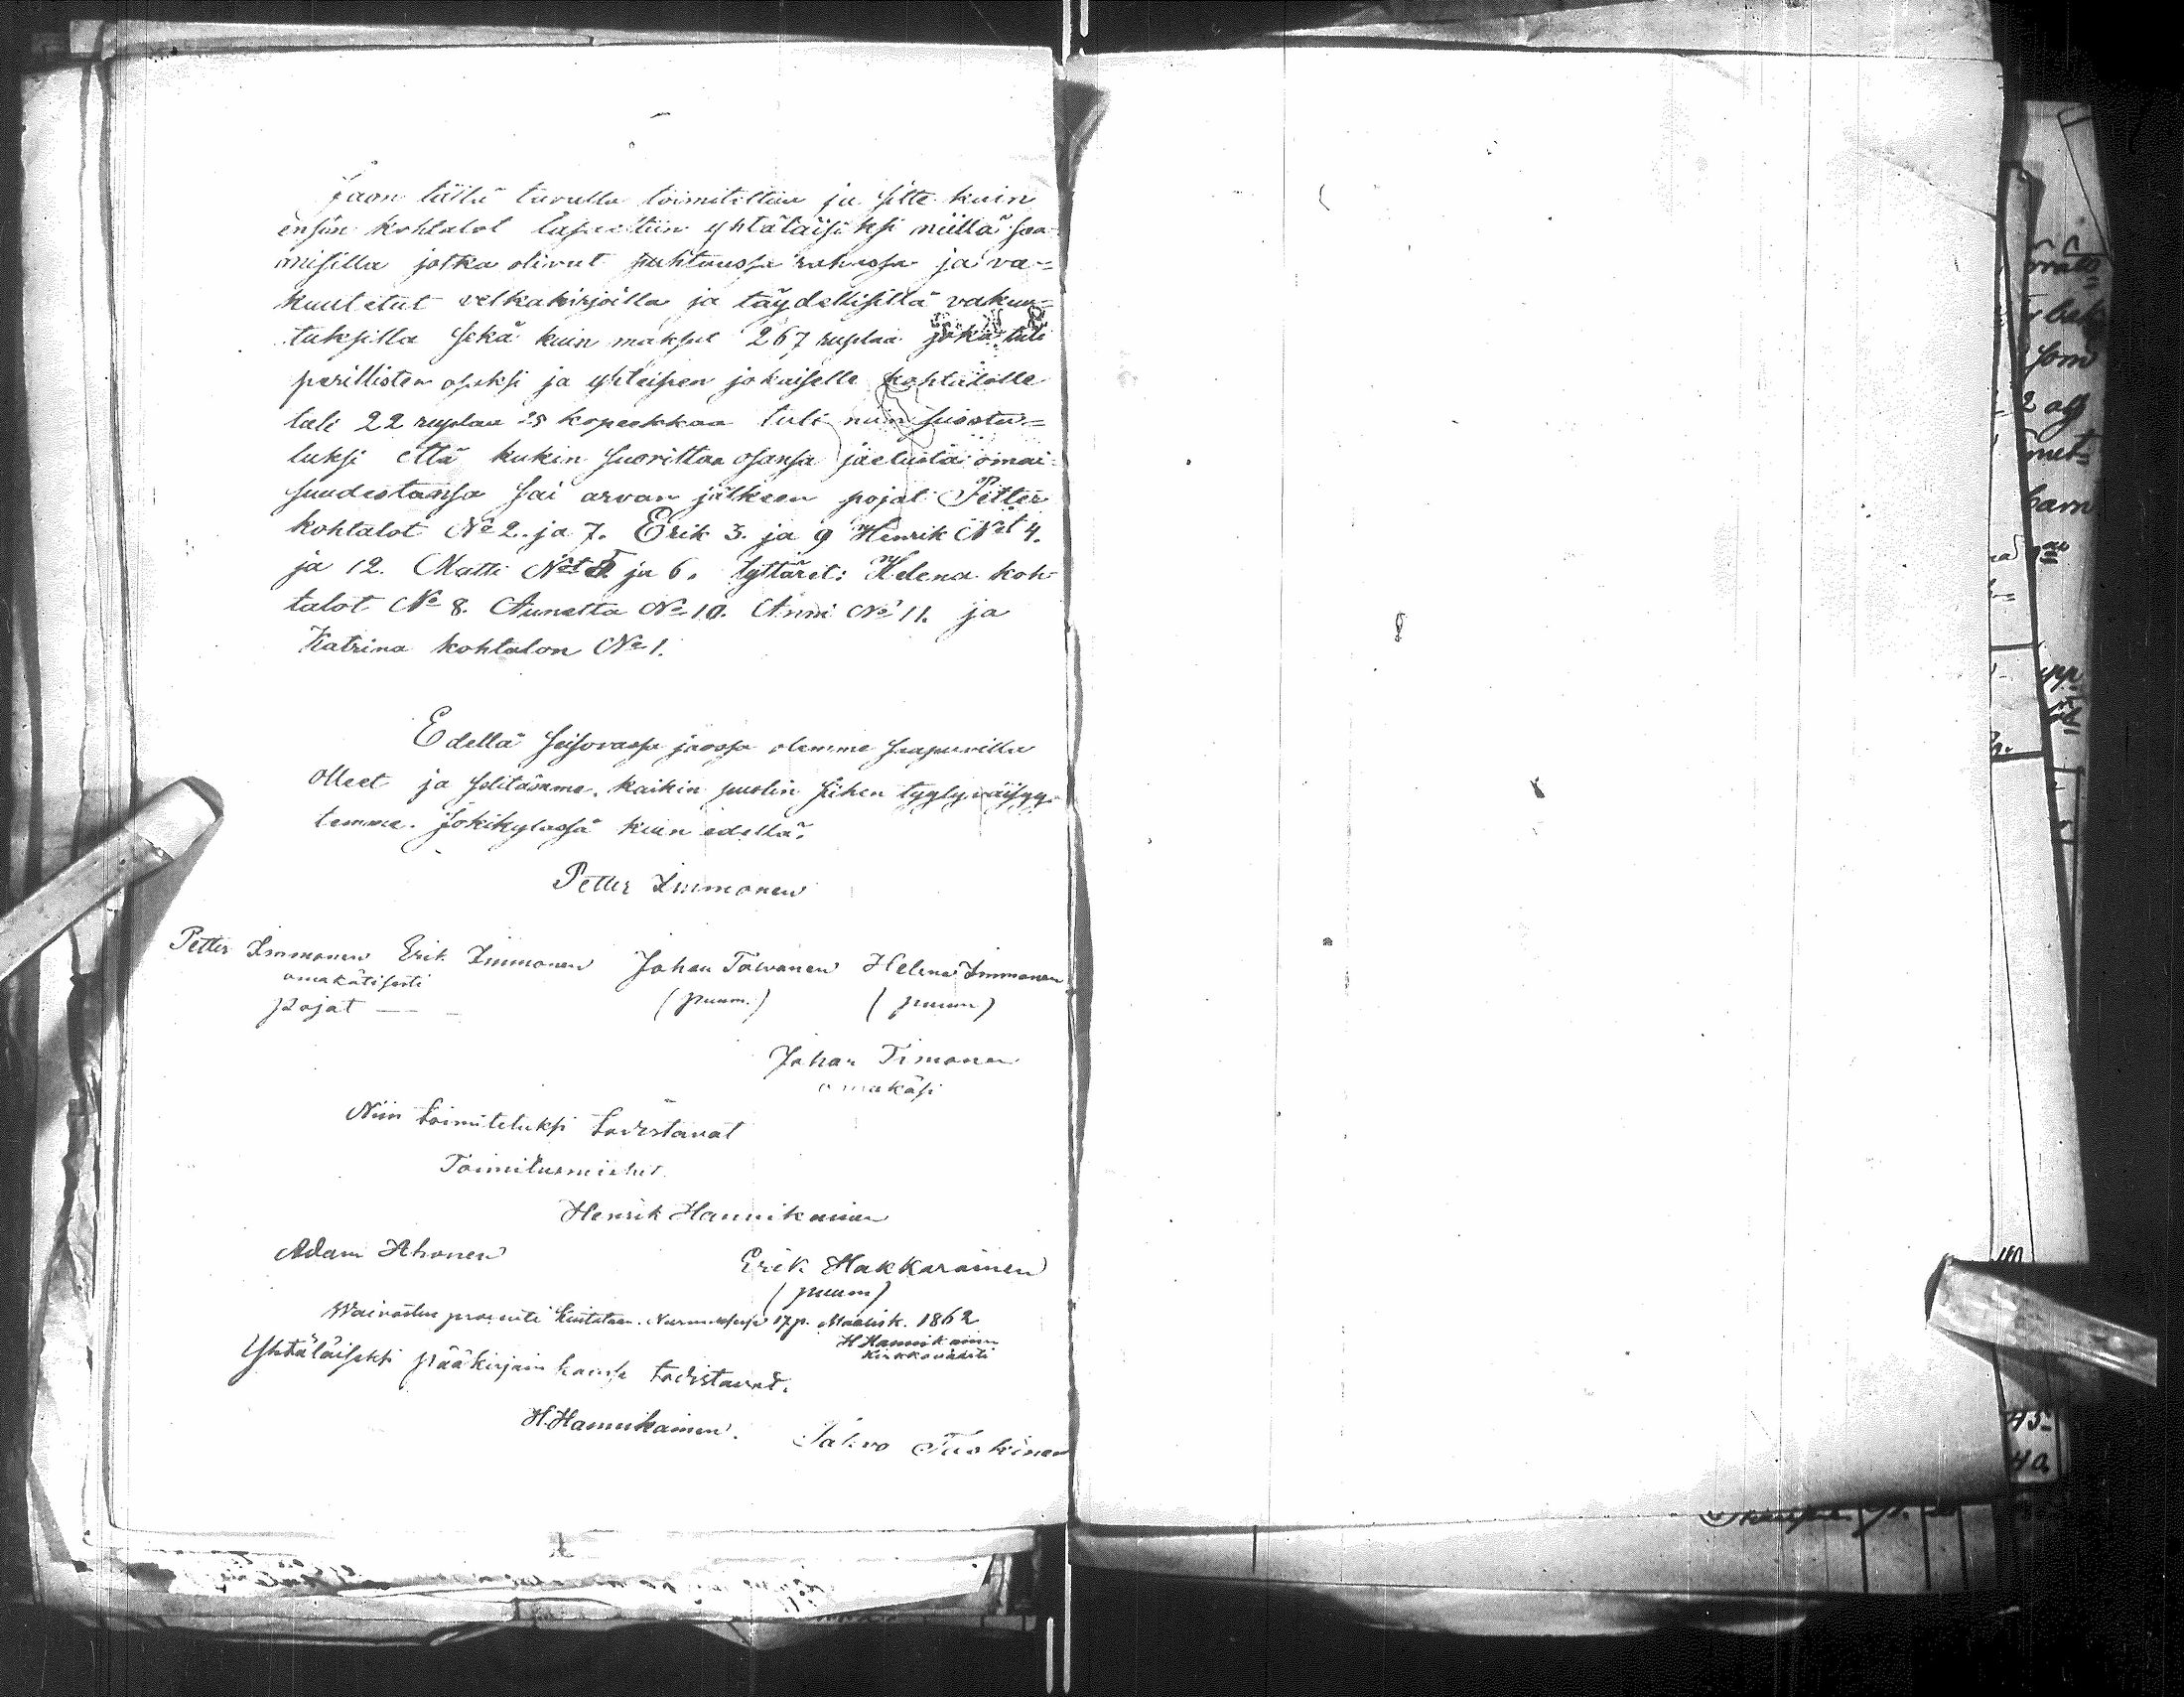 Jaon tällä tavalla toimitettua ja sitte kuin
ensin kohtalot lasettiin yhtäläiseksi niillä saa-
misilla jotka olivat puhtaassa rahassa ja va=
kuutetut velkakirjoilla ja täydellisillä vakuu=
tuksilla sekä kuin maksut 267 ruplaa joka tuli
perillisten osaksi ja yhteisen jokaiselle kohtalolle
tuli 22 ruplaa 25 kopeekkaa tuli niin suostu=
tuksi että kukin suorittaa osansa jaetusta omai=
suudestansa sai arvan jälkeen pojat Petter
kohtalot No 2. ja 7. Erik 3. ja 9 Henrik Not 4.
ja 12. Matti Not 5 ja 6. tyttäret: Helena koh-
talot No 8. Aunetta No 10. Anni No 11. ja
Katrina kohtalon No 1.
Edellä seisovassa jaossa olemme saapuvilla
olleet ja selitämme kaikin puolin siihen tyytyväisyy-
temme. Jokikylässä kuin edellä.
Petter Immonen
Petter Immonen Erik Immonen Johan Toivanen Helena Immonen
omakätisesti
pojat — - (puum.) (puum)
Johan Timonen
omakäsi
Niin toimitetuksi todistavat
Toimitusmiehet.
Henrik Hannikainen
Adam Ahonen Erik Hakkarainen
(puum)
Waivaistue prosentti kuitataan. Nurmeksessa 17 p. Maalisk. 1862
H Hannikainen
Kirkkoväärti
Yhtäläiseksi pääkirjain kanssa todistavat.
H. Hannikainen. Tuokinen